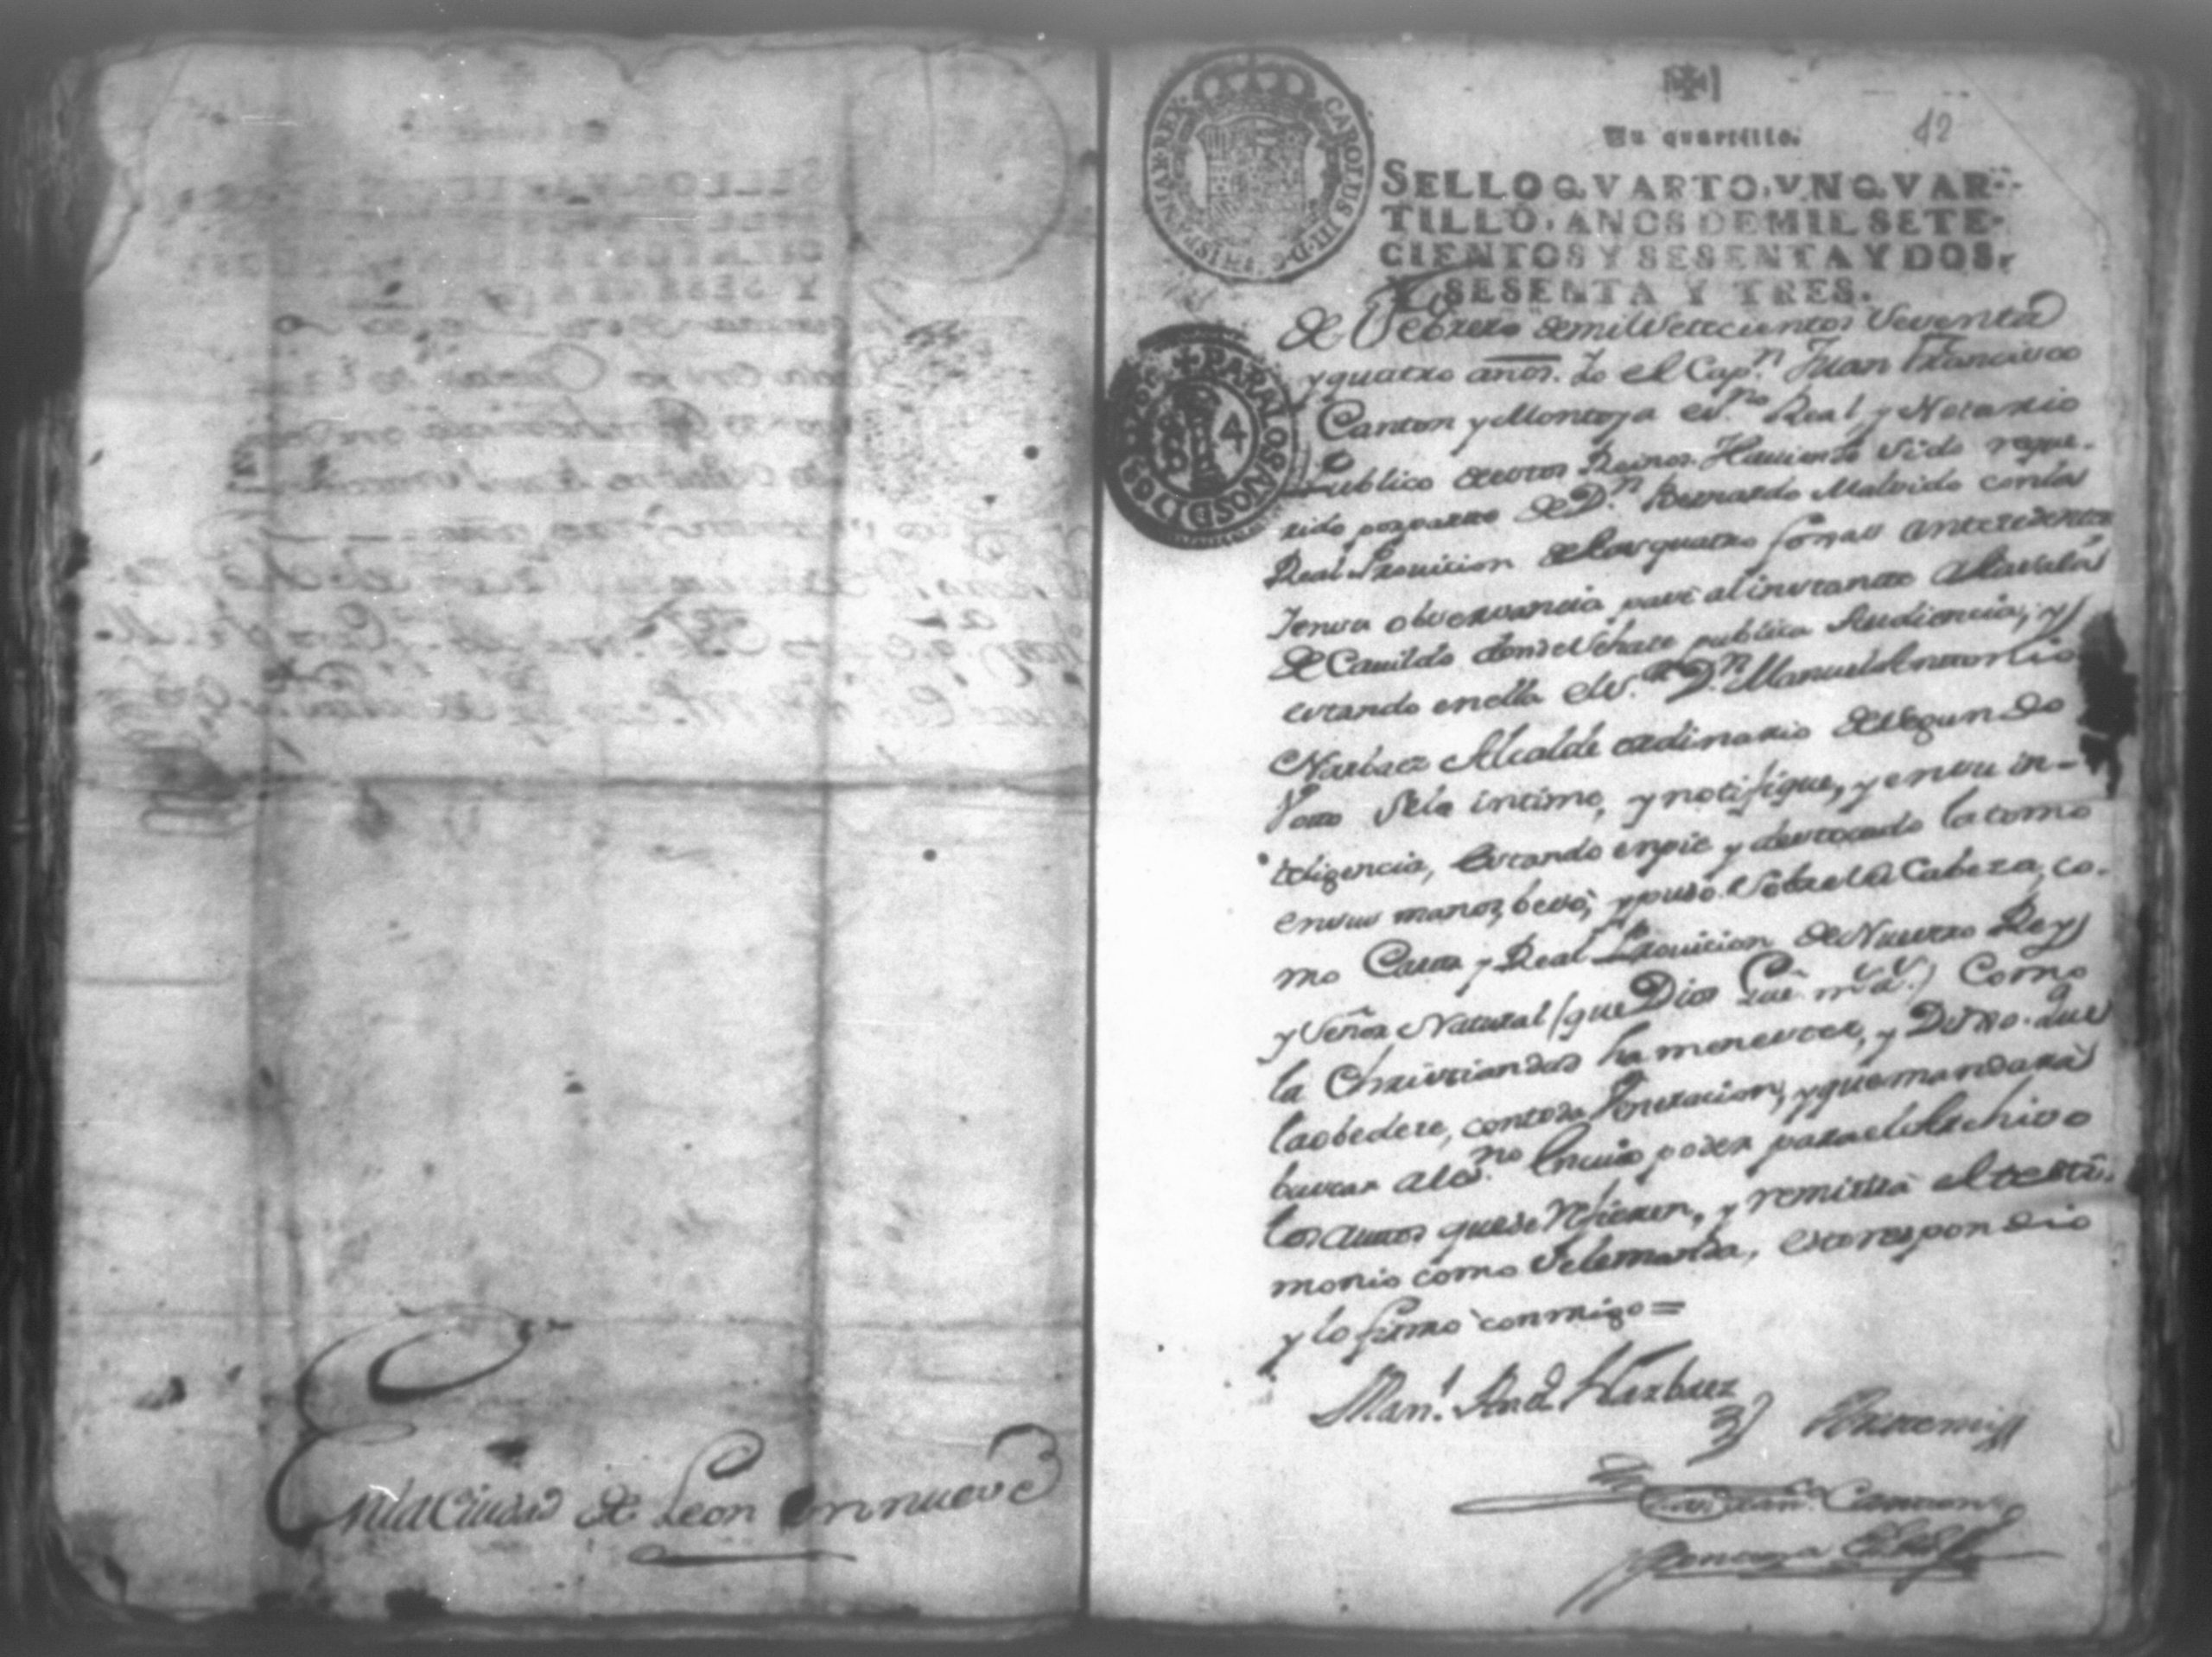 En la Ciudad de Leon en nueve
CAROLUS III. D. G. HISPANIAR. REX.
Un quartillo.
42
SELLO QVARTO, VN QVAR-
TILLO, AÑOS DE MIL SETE-
CIENTOS Y SESENTA Y DOS,
Y SESENTA Y TRES.
PARA LOS AÑOS D
de Febrero de mil Setecientos Sesenta
y quatro años. Yo el Cap.n Juan Francisco
Canton y Montoya es.no Real, y Notario
Publico de estos Reinos. Haviendo sido reque-
rido por parte de D.n Bernardo Malvido con la
Real Provicion de las quatro fojas antecedentes
en su observancia pacé al instante a la sala
de Cavildo donde se hace publica Audiencia, y
estando en ella el S.r D.n Manuel Antonio
Narbaez Alcalde ordinario de segundo
Voto se la intimo, y notifique, y en su in-
teligencia, estando en pie y destocado la tomo
en sus manos, besò, y puso sobre su Cabeza, co-
mo Carta y Real Provicion de Nuestro Rey
y Señor Natural (que Dios Gue. m.s a.s) Como
la Christiandad ha menester, y Dixo. Que
la obedece, con toda Veneracion, y que mandarà
buscar al es.no en cuio poder para el Archivo
los autos que se refieren, y remitirà el testi-
monio como se le manda, esto respondio
y lo firmo conmigo =
Man.l Ant.o Narbaez
Ante mi
Juan Fran.co Canton
y Montoya